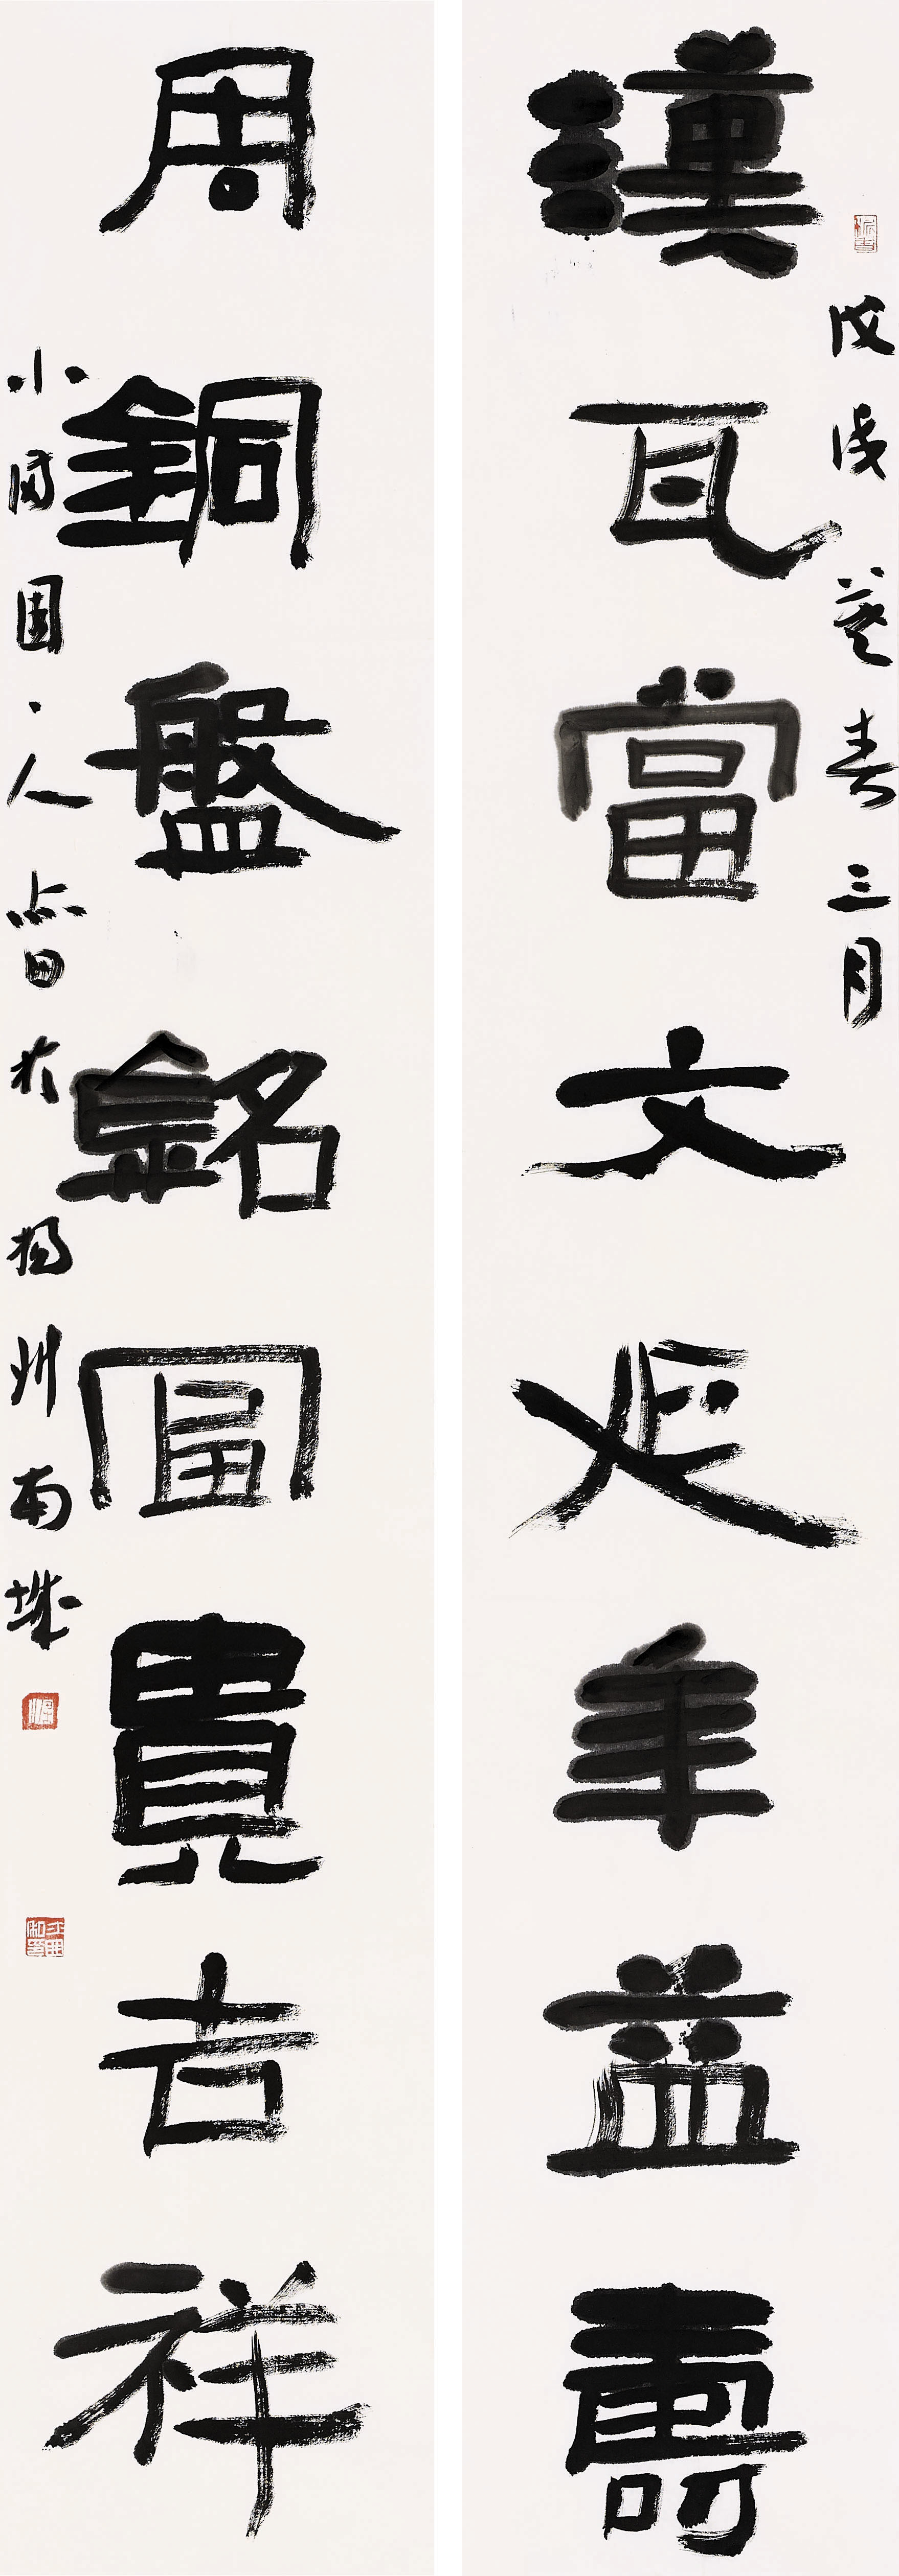 漢瓦當文延年益壽
戊戌暮春三月
周銅盤銘富貴吉祥
人 時於揚州南城